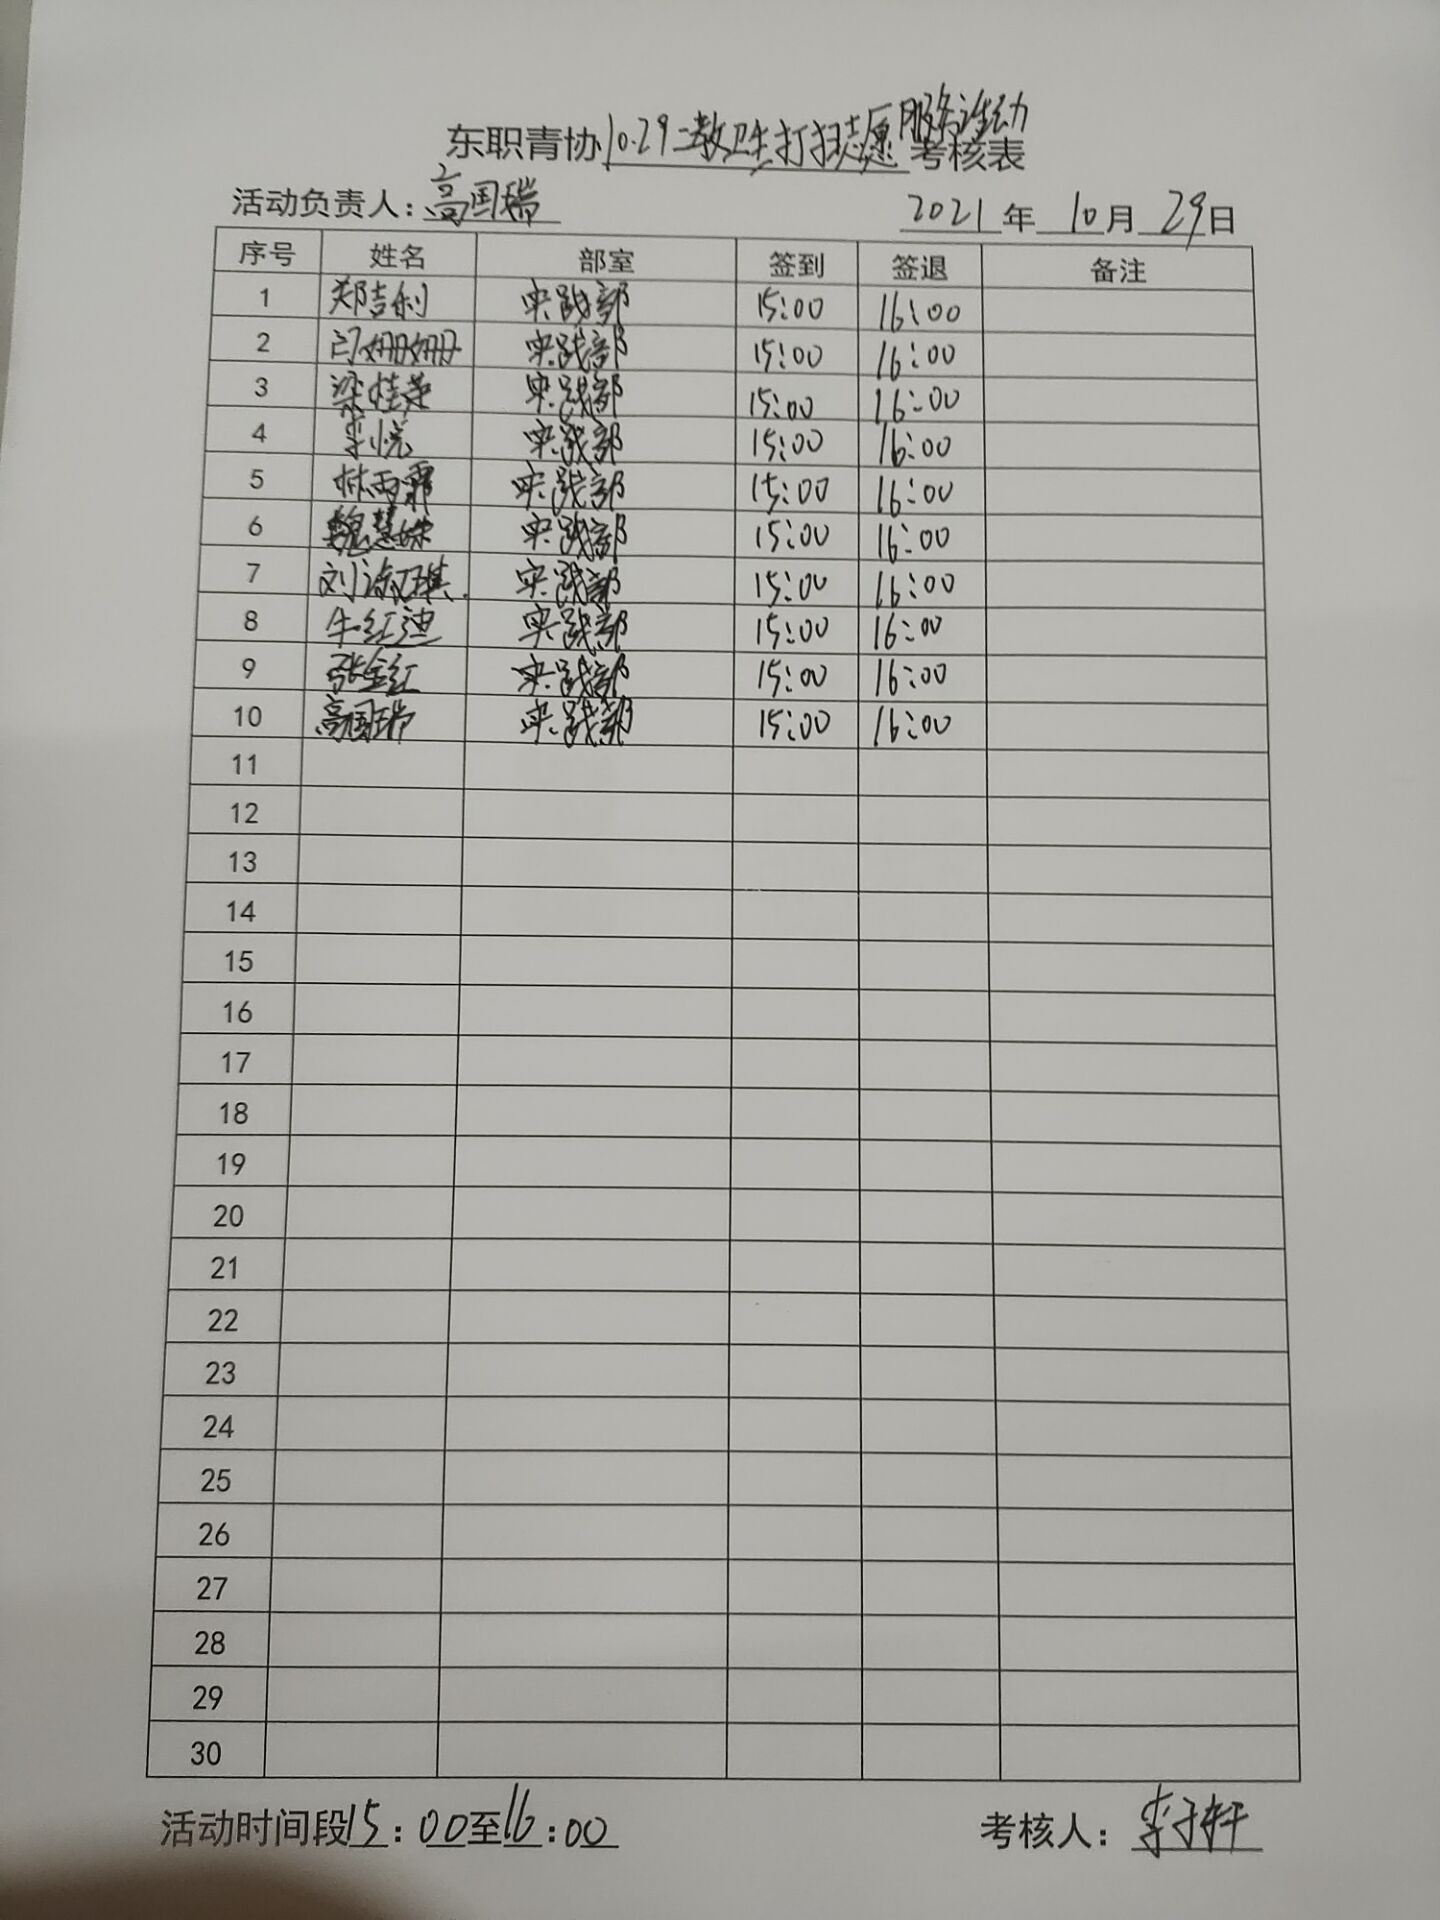 东职青协10.29二教卫生打扫志愿服务活动考核表
活动负责人：高国瑞 2021年10月29日
序号 姓名 部室 签到 签退 备注
1 郑吉利 实践部 15:00 16:00
2 闫姗姗 实践部 15:00 16:00
3 实践部 15:00 16:00
4 李悦 实践部 15:00 16:00
5 林雨霏 实践部 15:00 16:00
6 实践部 15:00 16:00
7 实践部 15:00 16:00
8 牛红迪 实践部 15:00 16:00
9 张金红 实践部 15:00 16:00
10 高国瑞 实践部 15:00 16:00
11
12
13
14
15
16
17
18
19
20
21
22
23
24
25
26
27
28
29
30
活动时间段15：00至16：00 考核人：李子轩